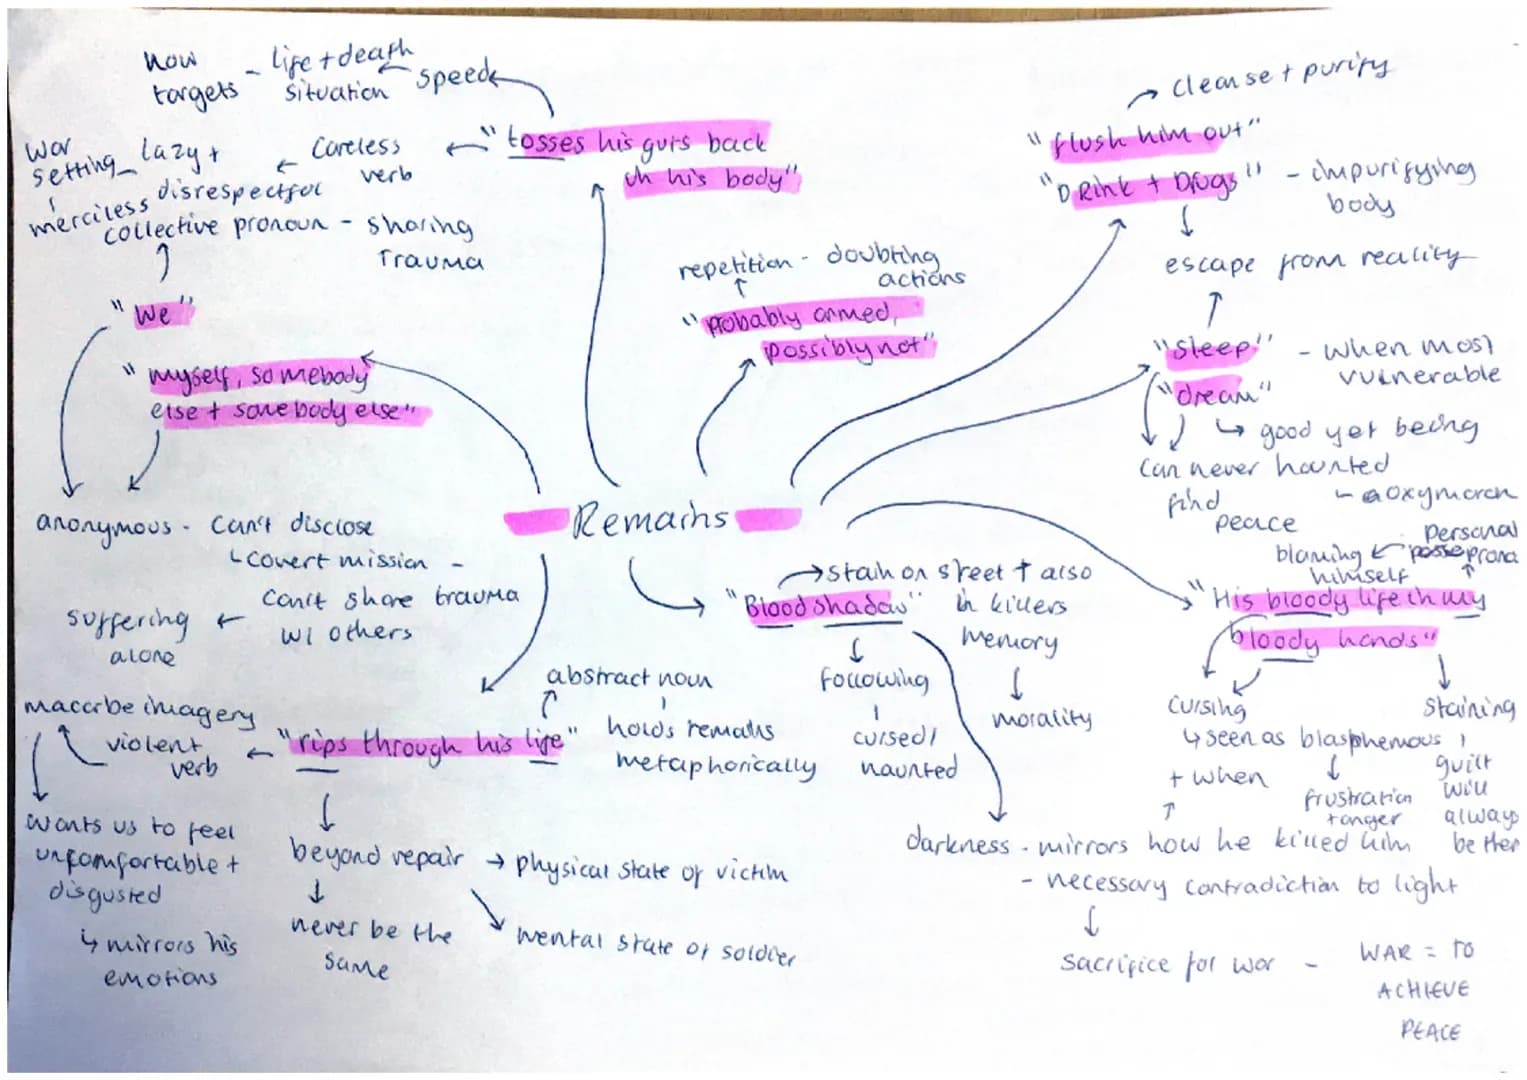 now targets - life + death situation
speed
"tosses his guts back
in his body"
careless verb
lazy + disrespectful
war setting
merciless
collective pronoun - sharing trauma
"We"
"myself, somebody
else + somebody else"
anonymous - can't disclose
covert mission -
can't share trauma
w/ others
suffering
alone
repetition - doubting
actions
"probably armed,
possibly not"
cleanse + purify
"flush him out"
"Drink + Drugs" - impurifying
body
escape from reality
"sleep" - when most
vulnerable
"dream"
good yet being
haunted
- oxymoron
can never
find
peace
Remains
"Blood shadow"
stain on street + also
in killers
memory
morality
following
cursed/
haunted
darkness - mirrors how he killed him
- necessary contradiction to light
sacrifice for war - WAR = TO
ACHIEVE
PEACE
"His bloody life in my
bloody hands"
personal
blaming
himself
cursing
seen as blasphemous
+ when
frustration
+ anger
staining
guilt
will
always
be ther
"rips through his life"
abstract noun
holds remains
metaphorically
violent
verb
macarbe imagery
wants us to feel
unfomfortable +
disgusted
mirrors his
emotions
beyond repair
physical state of victim
mental state of soldier
never be the
same